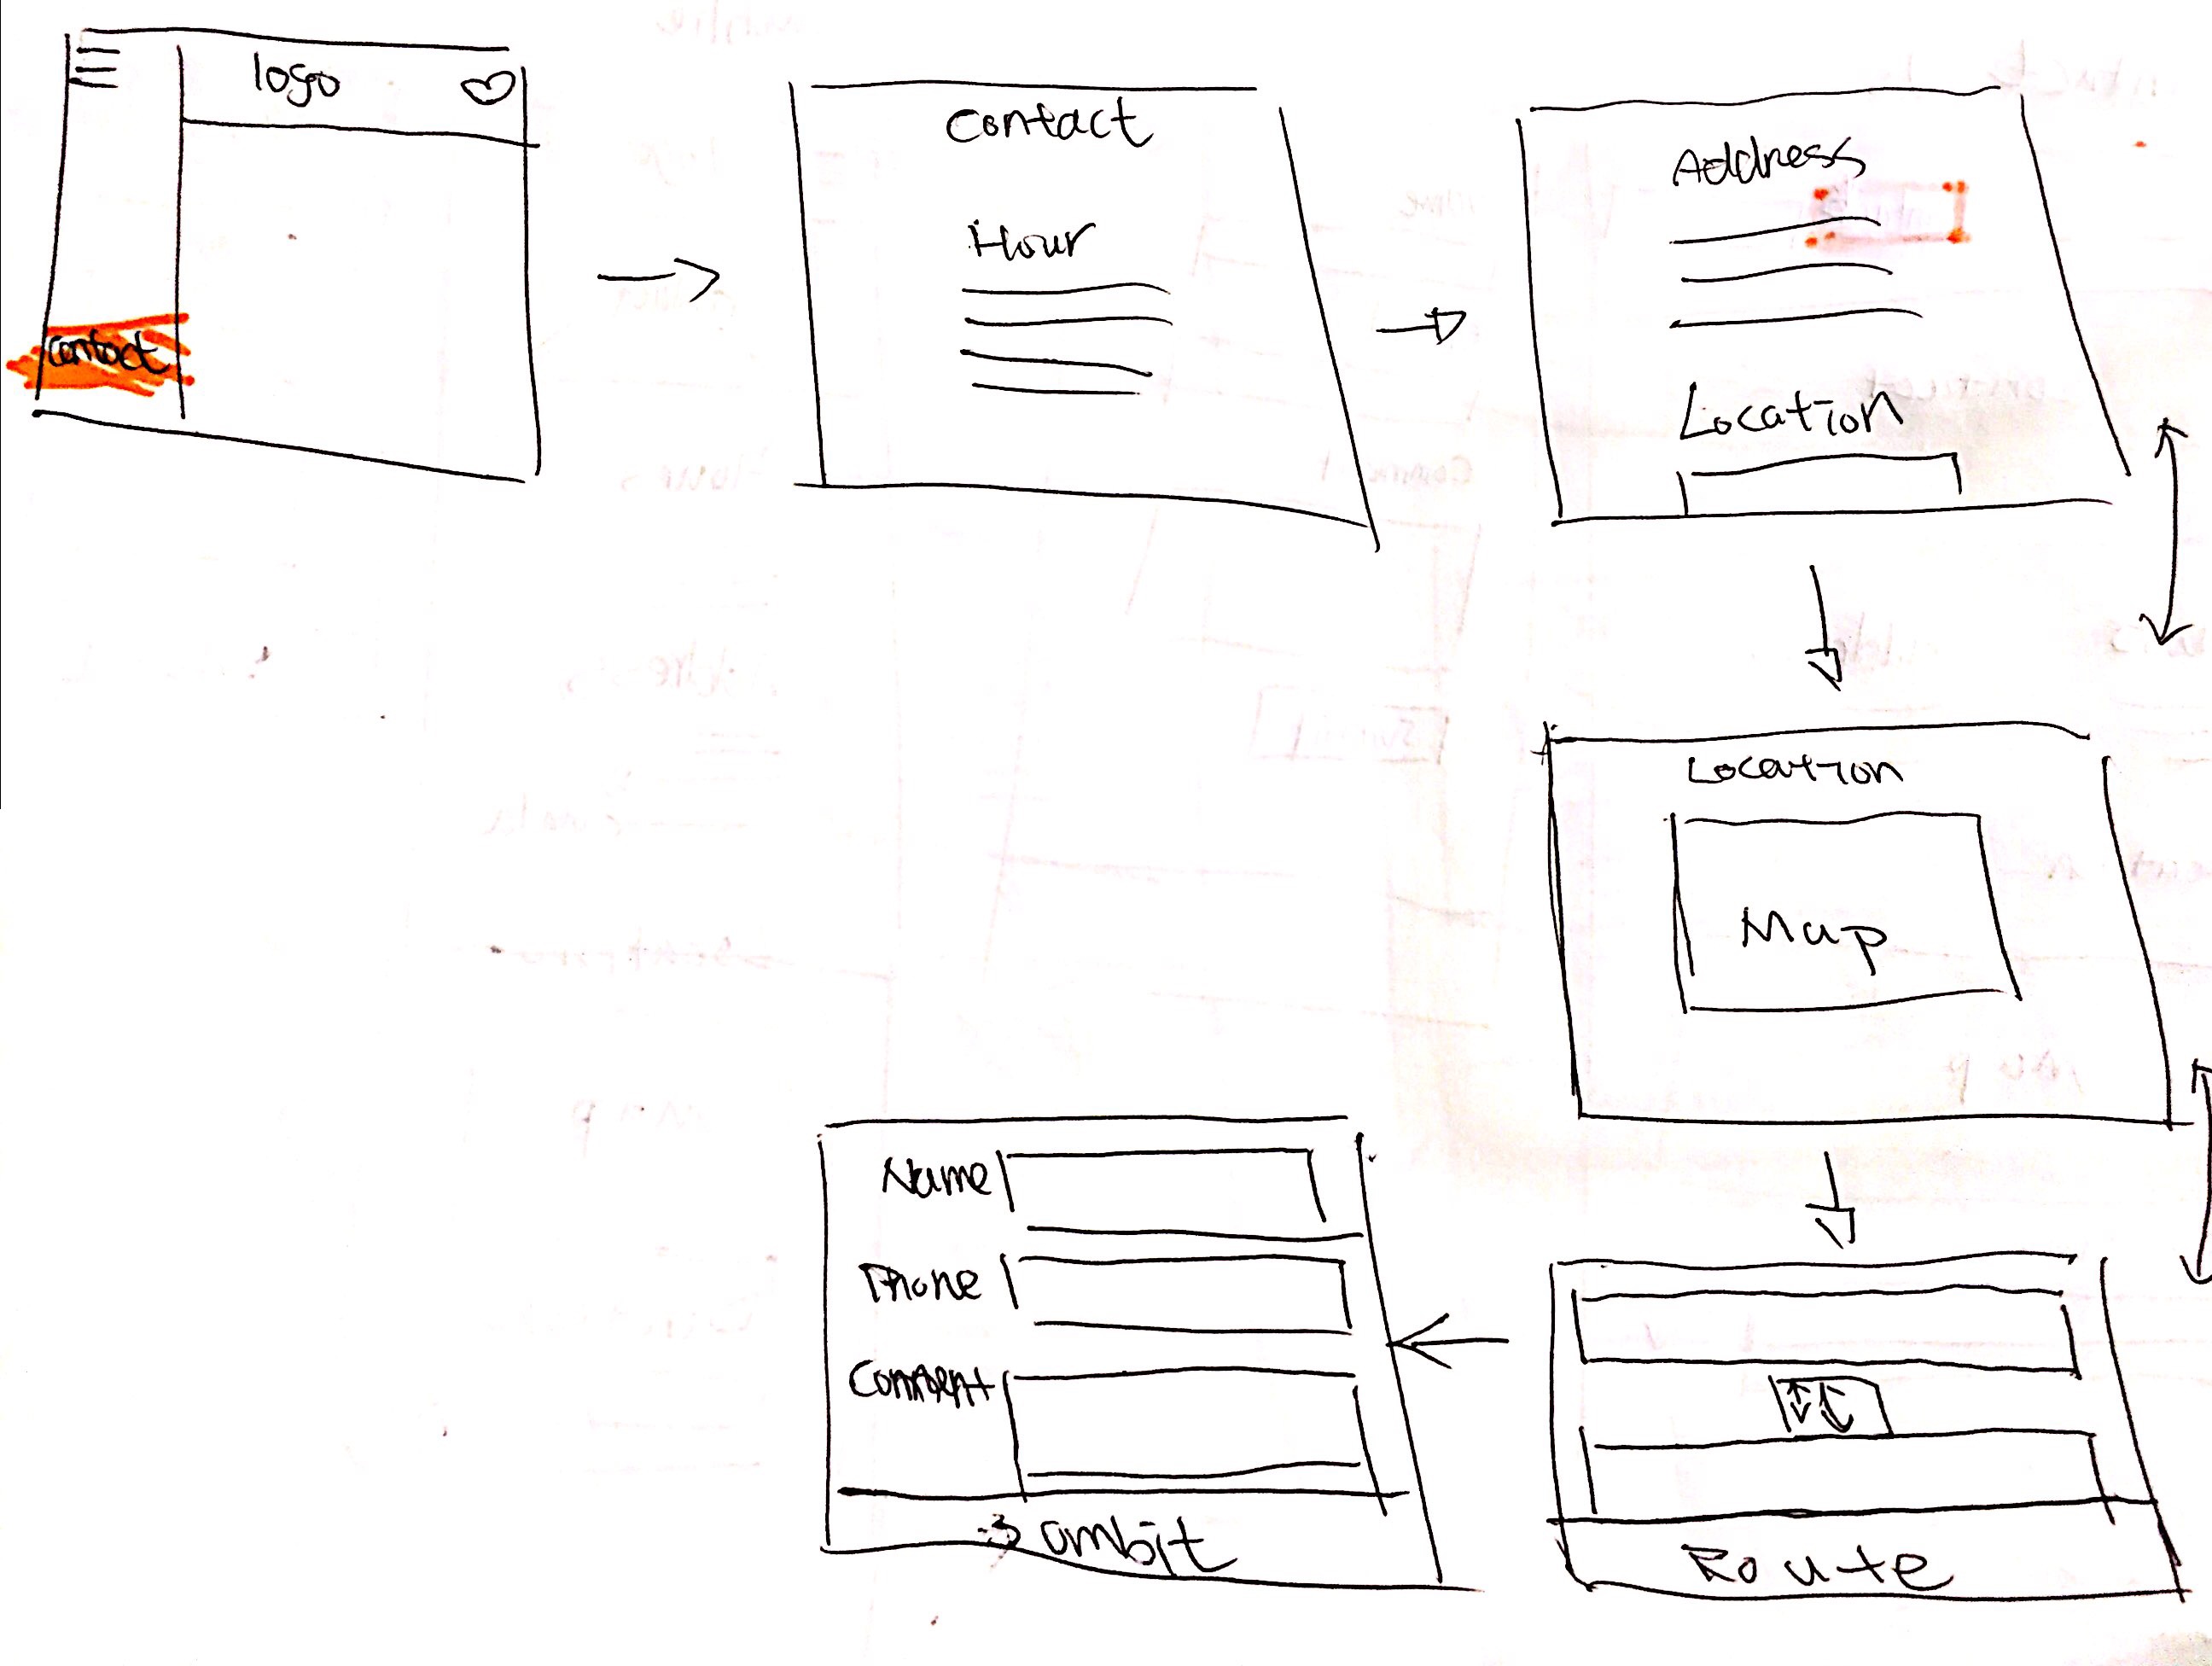 logo
contact
Contact
Hour
Address
Location
Location
Map
Route
Name
Phone
Comment
Sumbit